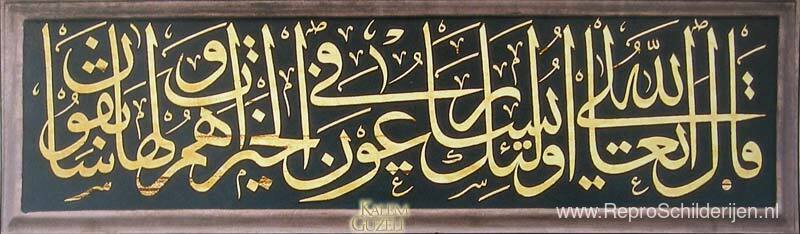 قال الله تعالى اولئك يسارعون في الخيرات وهم لها سابقون
KALEM GÜZELİ
www.ReproSchilderijen.nl